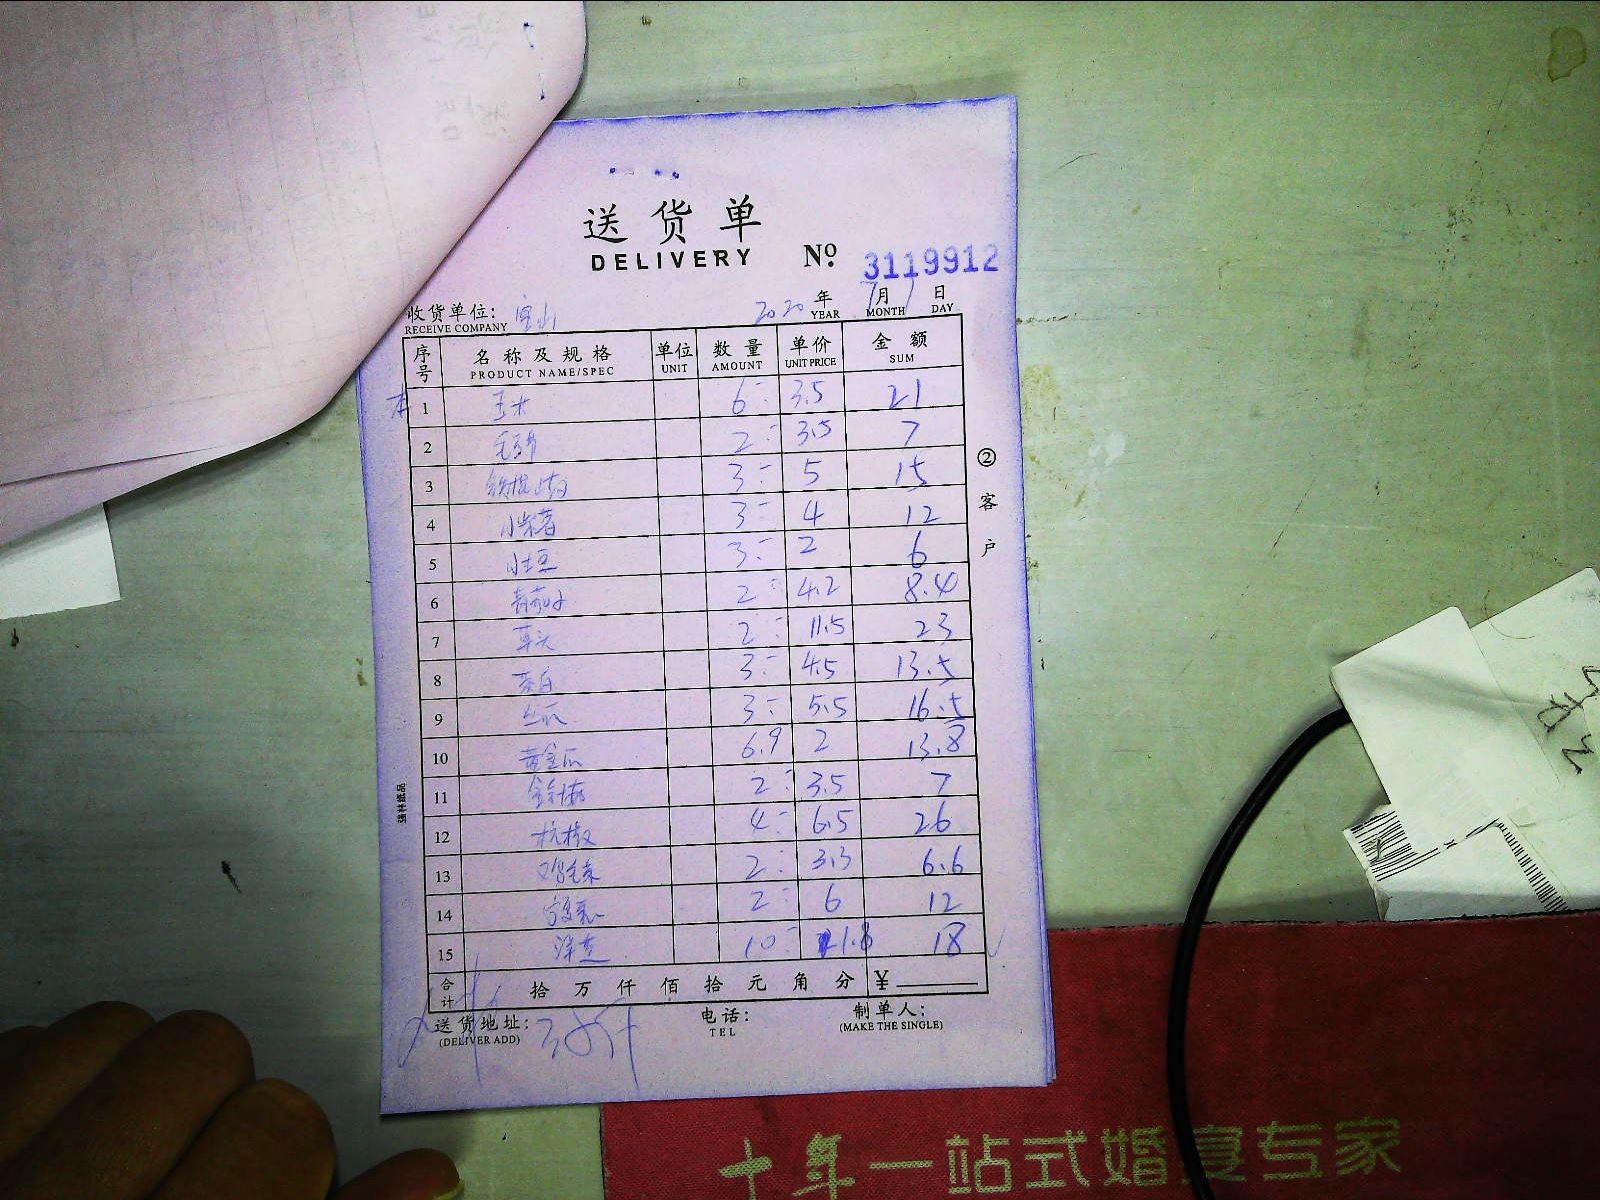 送货单
DELIVERY
№ 3119912
收货单位: 宝山 2020年 7月 1日
RECEIVE COMPANY YEAR MONTH DAY
序号 名称及规格 单位 数量 单价 金额
PRODUCT NAME/SPEC UNIT AMOUNT UNIT PRICE SUM
1 6 3.5 21
2 毛豆 2 3.5 7
3 3 5 15
4 小紫薯 3 4 12
5 小土豆 3 2 6
6 青茄子 2 4.2 8.4
7 草头 2 11.5 23
8 茭白 3 4.5 13.5
9 丝瓜 3 5.5 16.5
10 黄金瓜 6.9 2 13.8
11 金针菇 2 3.5 7
12 杭椒 4 6.5 26
13 鸡毛菜 2 3.3 6.6
14 2 6 12
15 洋葱 10 1.8 18
合计 拾 万 仟 佰 拾 元 角 分 ¥
送货地址: 电话: 制单人:
(DELIVER ADD) TEL (MAKE THE SINGLE)
②客户
强林纸品
十年一站式婚宴专家